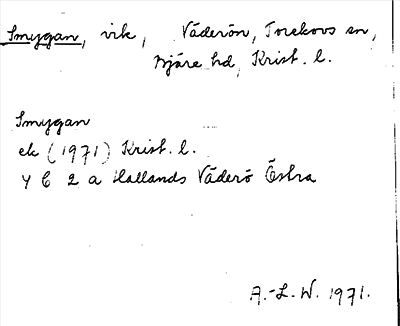 Smygan, vik, Väderön, Torekovs sn,
Bjäre hd, Krist. l.
Smygan
ek (1971) Krist. l.
4 C 2 a Hallands Väderö Östra
A.-L. W. 1971.